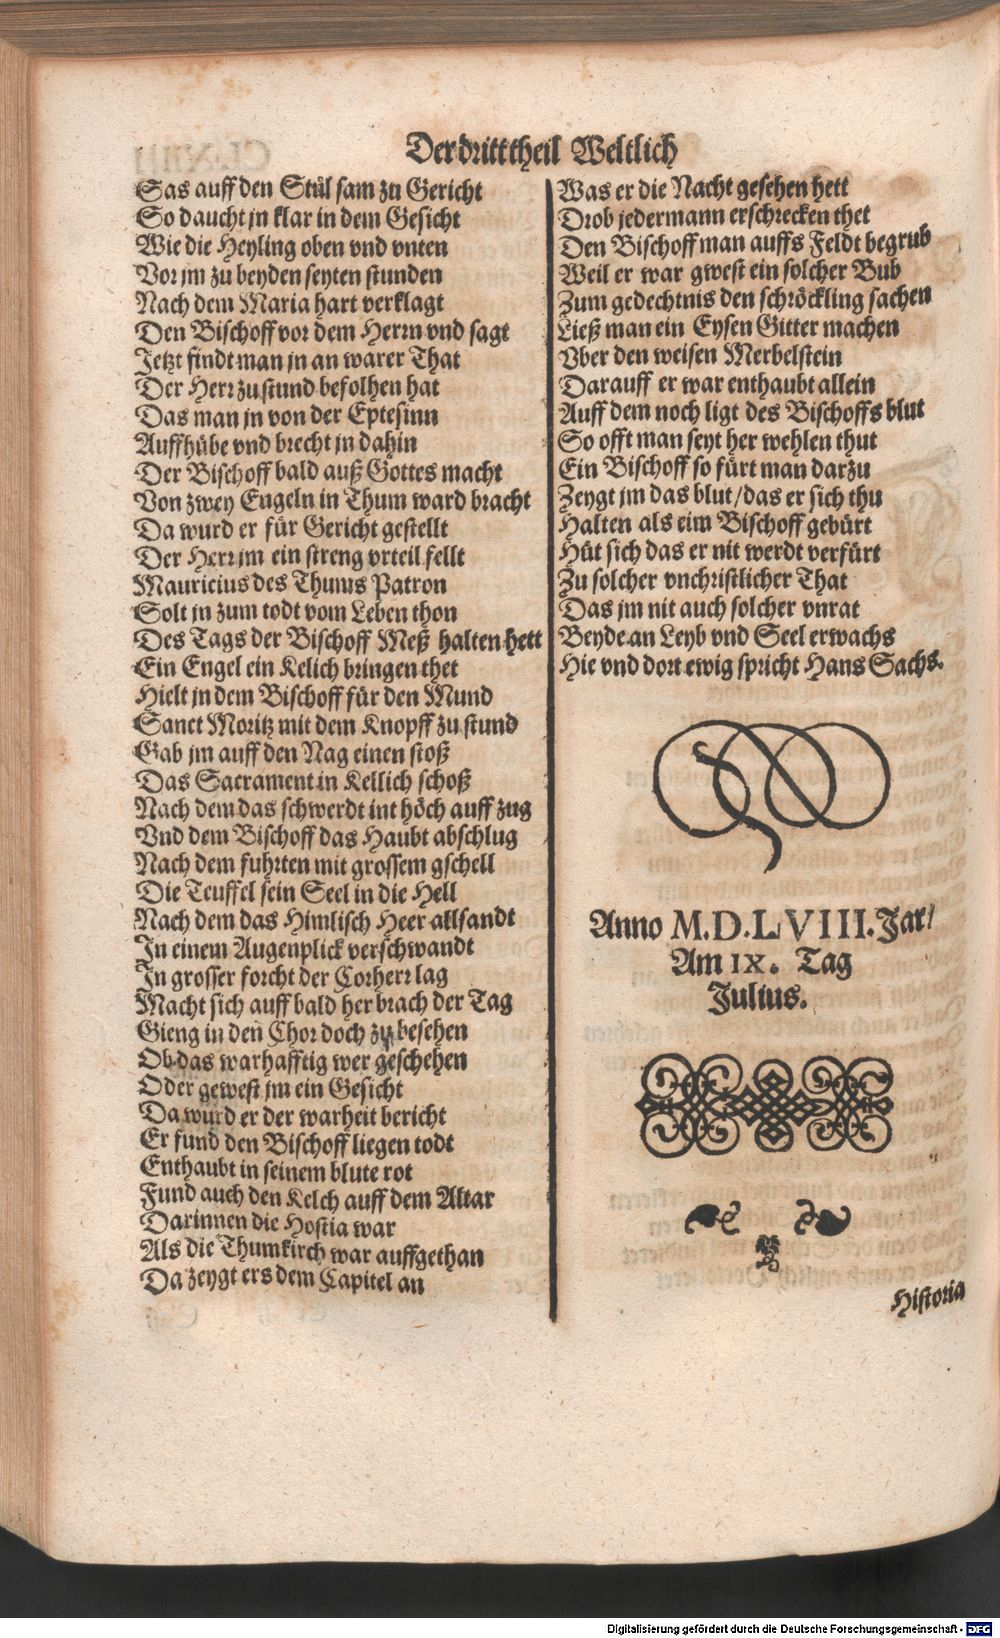 Der dritt theil Weltlich
Sas auff den Stůl sam zu Gericht
So daucht jn klar in dem Gesicht
Wie die Heyling oben vnd vnten
Vor jm zu beyden seyten stunden
Nach dem Maria hart verklagt
Den Bischoff vor dem Herrn vnd sagt
Jetzt findt man jn an warer That
Der Herr zu stund befolhen hat
Das man jn von der Eptesinn
Auffhübe vnd brecht jn dahin
Der Bischoff bald auß Gottes macht
Von zwey Engeln in Thum ward bracht
Da wurd er für Gericht gestellt
Der Herr jm ein streng vrteil fellt
Mauricius des Thums Patron
Solt jn zum todt vom Leben thon
Des Tags der Bischoff Meß halten hett
Ein Engel ein Kelich bringen thet
Hielt jn dem Bischoff für den Mund
Sanct Moritz mit dem Knopff zu stund
Gab jm auff den Nag einen stoß
Das Sacrament in Kellich schoß
Nach dem das schwerdt int höch auff zug
Vnd dem Bischoff das Haubt abschlug
Nach dem fuhrten mit grossem gschell
Die Teuffel sein Seel in die Hell
Nach dem das Himlisch Heer allsandt
In einem Augenplick verschwandt
In grosser forcht der Corherr lag
Macht sich auff bald her brach der Tag
Gieng in den Chor doch zu besehen
Ob das warhafftig wer geschehen
Oder gewest jm ein Gesicht
Da wurd er der warheit bericht
Er fund den Bischoff liegen todt
Enthaubt in seinem blute rot
Fund auch den Kelch auff dem Altar
Darinnen die Hostia war
Als die Thumkirch war auffgethan
Da zeygt ers dem Capitel an
Was er die Nacht gesehen hett
Drob jedermann erschrecken thet
Den Bischoff man auffs Feldt begrub
Weil er war gwest ein solcher Bub
Zum gedechtnis den schröckling sachen
Ließ man ein Eysen Gitter machen
Vber den weisen Merbelstein
Darauff er war enthaubt allein
Auff dem noch ligt des Bischoffs blut
So offt man seyt her wehlen thut
Ein Bischoff so fürt man darzu
Zeygt jm das blut / das er sich thu
Halten als eim Bischoff gebürt
Hüt sich das er nit werdt verfürt
Zu solcher vnchristlicher That
Das jm nit auch solcher vnrat
Beyde an Leyb vnd Seel erwachs
Hie vnd dort ewig spricht Hans Sachs.
Anno M.D.LVIII. Jar /
Am IX. Tag
Julius.
Historia
Digitalisierung gefördert durch die Deutsche Forschungsgemeinschaft - DFG